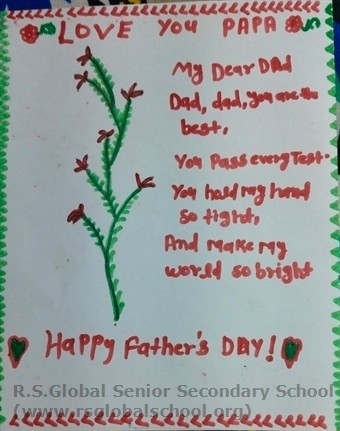 LOVE YOU PAPA
My Dear DAd
Dad, dad, you are the
best,
You Pass every Test.
You hold my hand
so tight,
And make my
world so bright
Happy Father's DAY!
R.S.Global Senior Secondary School
(www.rsglobalschool.org)